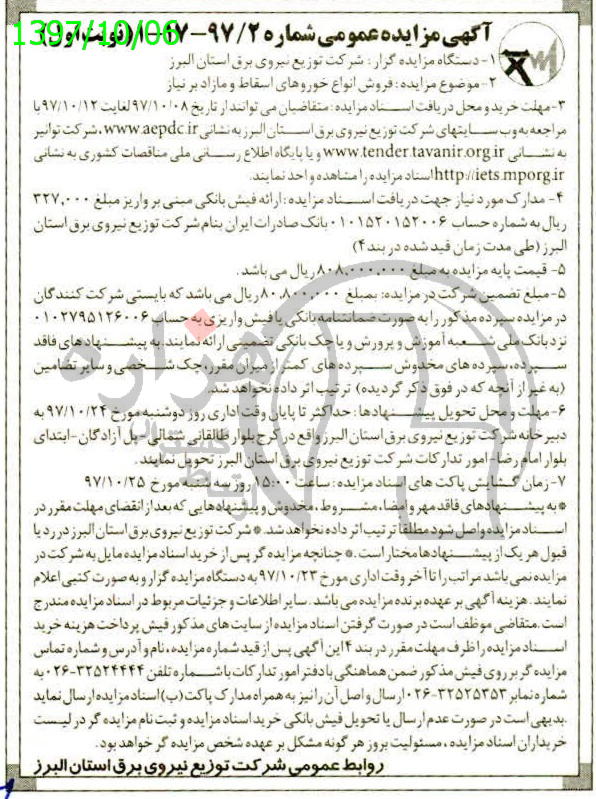 1397/10/06
آگهی مزایده عمومی شماره ۹۷/۲-۱۷-۱ (نوبت اول)
۱- دستگاه مزایده گزار: شرکت توزیع نیروی برق استان البرز
۲- موضوع مزایده: فروش انواع خوروهای اسقاط و مازاد بر نیاز
۳- مهلت خرید و محل دریافت اسناد مزایده: متقاضیان می توانند از تاریخ ۹۷/۱۰/۰۸ لغایت ۹۷/۱۰/۱۲ با
مراجعه به وب سایتهای شرکت توزیع نیروی برق استان البرز به نشانی www.aepdc.ir، شرکت توانیر
به نشانی www.tender.tavanir.org.ir و یا پایگاه اطلاع رسانی ملی مناقصات کشوری به نشانی
http://iets.mporg.ir اسناد مزایده را مشاهده و اخذ نمایند.
۴- مدارک مورد نیاز جهت دریافت اسناد مزایده: ارائه فیش بانکی مبنی بر واریز مبلغ ۳۲۷,۰۰۰
ریال به شماره حساب ۰۱۰۱۵۲۰۱۵۲۰۰۶ بانک صادرات ایران بنام شرکت توزیع نیروی برق استان
البرز (طی مدت زمان قید شده در بند ۴)
۵- قیمت پایه مزایده به مبلغ ۸۰۸,۰۰۰,۰۰۰ ریال می باشد.
۵- مبلغ تضمین شرکت در مزایده: بمبلغ ۸۰,۸۰۰,۰۰۰ ریال می باشد که بایستی شرکت کنندگان
در مزایده سپرده مذکور را به صورت ضمانتنامه بانکی یا فیش واریزی به حساب ۰۱۰۲۷۹۵۱۲۶۰۰۶
نزد بانک ملی شعبه آموزش و پرورش و یا چک بانکی تضمینی ارائه نمایند. به پیشنهادهای فاقد
سپرده، سپرده های مخدوش سپرده های کمتر از میزان مقرر، چک شخصی و سایر تضامین
(به غیر از آنچه که در فوق ذکر گردیده) ترتیب اثر داده نخواهد شد.
۶- مهلت و محل تحویل پیشنهادها: حداکثر تا پایان وقت اداری روز دوشنبه مورخ ۹۷/۱۰/۲۴ به
دبیرخانه شرکت توزیع نیروی برق استان البرز واقع در کرج بلوار طالقانی شمالی-پل آزادگان-ابتدای
بلوار امام رضا-امور تدارکات شرکت توزیع نیروی برق استان البرز تحویل نمایند.
۷- زمان گشایش پاکت های اسناد مزایده: ساعت ۱۵:۰۰ روز سه شنبه مورخ ۹۷/۱۰/۲۵
*به پیشنهادهای فاقد مهر و امضا، مشروط، مخدوش و پیشنهادهایی که بعد از انقضای مهلت مقرر در
اسناد مزایده واصل شود مطلقا ترتیب اثر داده نخواهد شد. *شرکت توزیع نیروی برق استان البرز در رد یا
قبول هر یک از پیشنهادها مختار است. *چنانچه مزایده گر پس از خرید اسناد مزایده مایل به شرکت در
مزایده نمی باشد مراتب را تا آخر وقت اداری مورخ ۹۷/۱۰/۲۳ به دستگاه مزایده گزار و به صورت کتبی اعلام
نمایند. هزینه آگهی بر عهده برنده مزایده می باشد. سایر اطلاعات و جزئیات مربوط در اسناد مزایده مندرج
است. متقاضی موظف است در صورت گرفتن اسناد مزایده از سایت های مذکور فیش پرداخت هزینه خرید
اسناد مزایده را ظرف مهلت مقرر در بند ۴ این آگهی پس از قید شماره مزایده، نام و آدرس و شماره تماس
مزایده گر بر روی فیش مذکور ضمن هماهنگی با دفتر امور تدارکات با شماره تلفن ۳۲۵۲۴۴۴۴-۰۲۶ به
شماره نمابر ۳۲۵۲۵۳۵۳-۰۲۶ ارسال و اصل آن را نیز به همراه مدارک پاکت (ب) اسناد مزایده ارسال نماید
.بدیهی است در صورت عدم ارسال یا تحویل فیش بانکی خرید اسناد مزایده و ثبت نام مزایده گر در لیست
خریداران اسناد مزایده، مسئولیت بروز هر گونه مشکل بر عهده شخص مزایده گر خواهد بود.
روابط عمومی شرکت توزیع نیروی برق استان البرز
هزاره